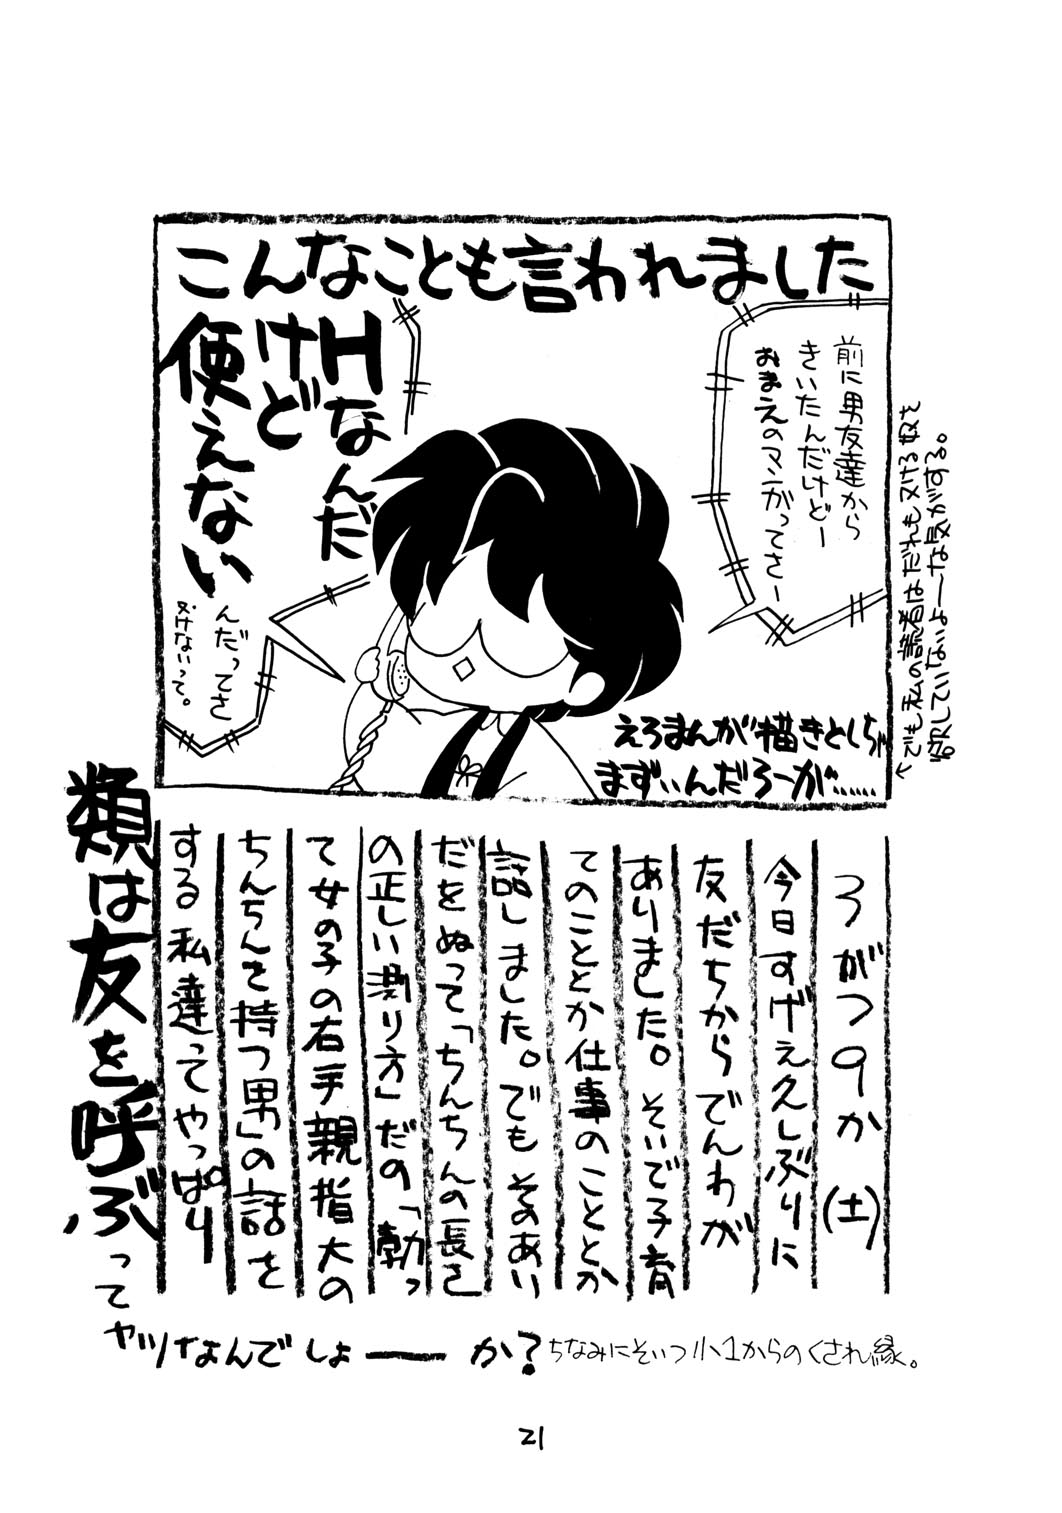 こんなことも言われました
前に男友達から
きいたんだけどー
おまえのマンガってさー
Hなんだ
けど
使えない
んだってさ
ヌけないって。
えろまんが描きとしちゃ
まずいんだろーが……
←でも私の読者はだれもヌける奴を
欲していないよーな気がする。
3がつ9か(土)
今日すげえ久しぶりに
友だちからでんわが
ありました。そいで子育
てのこととか仕事のこととか
話しました。でもそのあい
だをぬって「ちんちんの長さ
の正しい測り方」だの、「勃っ
て女の子の右手親指大の
ちんちんを持つ男」の話を
する私達ってやっぱり
類は友を呼ぶって
ヤツなんでしょーーか?
ちなみにそいつ小1からのくされ縁。
21